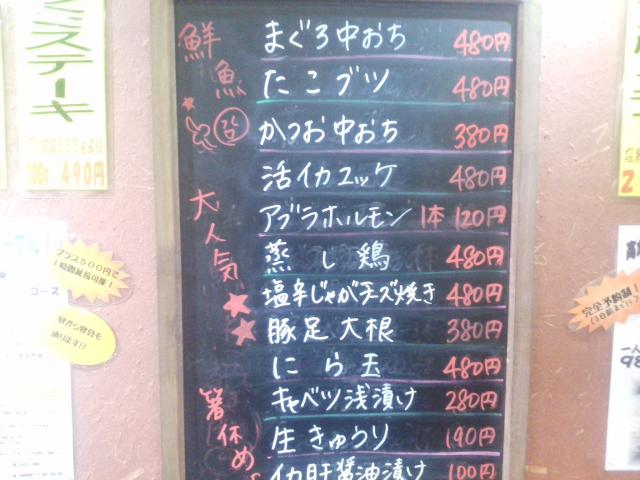 鮮魚
まぐろ中おち 480円
たこブツ 480円
かつお中おち 380円
活イカユッケ 480円
大人気
アブラホルモン 1本 120円
蒸し鶏 480円
塩辛じゃがチーズ焼き 480円
豚足大根 380円
にら玉 480円
箸休め
キャベツ浅漬け 280円
生きゅうり 190円
イカ肝醤油漬け 100円
ステーキ
100g 490円
プラス500円で
1時間延長可能!
コース
承ります!!
完全予約制!